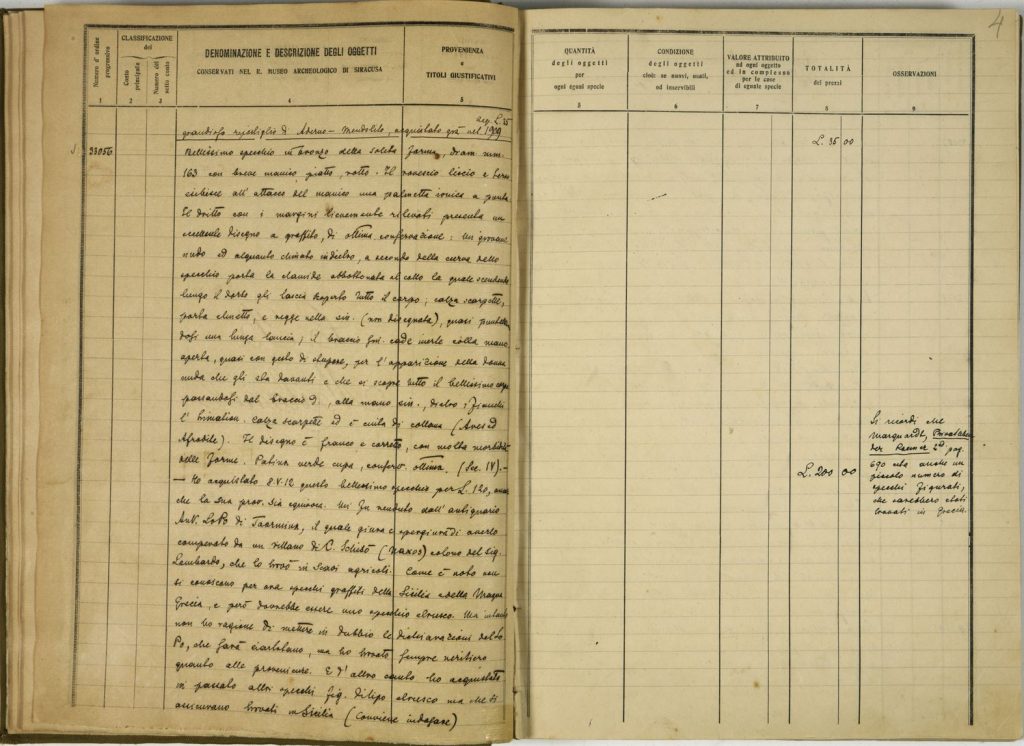 Numero d'ordine progressivo
CLASSIFICAZIONE
del
Ceto principale
Numero del sotto ceto
DENOMINAZIONE E DESCRIZIONE DEGLI OGGETTI
CONSERVATI NEL R. MUSEO ARCHEOLOGICO DI SIRACUSA
PROVENIENZA
e
TITOLI GIUSTIFICATIVI
1 2 3 4 5
acq. L. 35
grandioso ripostiglio di Aderno - Mendolito, acquistato già nel 1909
33056
Bellissimo specchio in bronzo della solita forma, diam. mm.
163 con breve manico piatto, rotto. Il rovescio liscio e terso
esibisce all'attacco del manico una palmetta ionica a punta
Il dritto con i margini lievemente rilevati presenta un
eccellente disegno a graffito, di ottima conservazione: Un giovane
nudo ed alquanto chinato indietro, a seconda della curva dello
specchio porta la clamide abbottonata al collo la quale scendendo
lungo il dorso gli lascia scoperto tutto il corpo; calza scarpette,
porta elmetto, e regge nella sin. (non disegnata), quasi puntellan
dosi una lunga lancia; il braccio cade inerte colla mano
aperta, quasi con gesto di stupore, per l'apparizione della donna
nuda che gli sta davanti e che si scopre tutto il bellissimo corpo
passandosi dal braccio d. alla mano sin., dietro i fianchi
l'himation. Calza scarpette ed è cinta di collana (Ares ed
Afrodite). Il disegno è franco e corretto, con molta morbidità
delle forme. Patina verde cupa, conserv. ottima. (Sec. IV). -
- Ho acquistato 8.V.12 questo bellissimo specchio per L. 120,
che la sua prov. sia equivoca. Mi fu venduto dall'antiquario
Ant. Lo Po di Taormina, il quale giura e spergiura di averlo
comperato da un villano di C. Schisò (Naxos) colono del sig.
Lombardo, che lo trovò in scavi agricoli. Come è noto non
si conoscono per ora specchi graffiti della Sicilia e della Magna
Grecia, e però dovrebbe essere uno specchio etrusco. Ma intanto
non ho ragione di mettere in dubbio le dichiarazioni del Lo
Po, che sarà ciarlatano, ma ho trovato sempre veritiero
quanto alle provenienze. E d'altro canto ho acquistato
in passato altri specchi fig. di tipo etrusco ma che si
assicurano trovati in Sicilia (Conviene indagare)
4
QUANTITÀ
degli oggetti
per
ogni egual specie
CONDIZIONE
degli oggetti
cioè: se nuovi, usati,
od inservibili
VALORE ATTRIBUITO
ad ogni oggetto
ed in complesso
per le cose
di eguale specie
TOTALITÀ
dei prezzi
OSSERVAZIONI
5 6 7 8 9
L. 35 00
L. 200 00
Si ricordi che
Marquardt, Privatleben
der Roemer 2ª pag.
690 cita anche un
piccolo numero di
specchi figurati,
che sarebbero stati
trovati in Grecia.